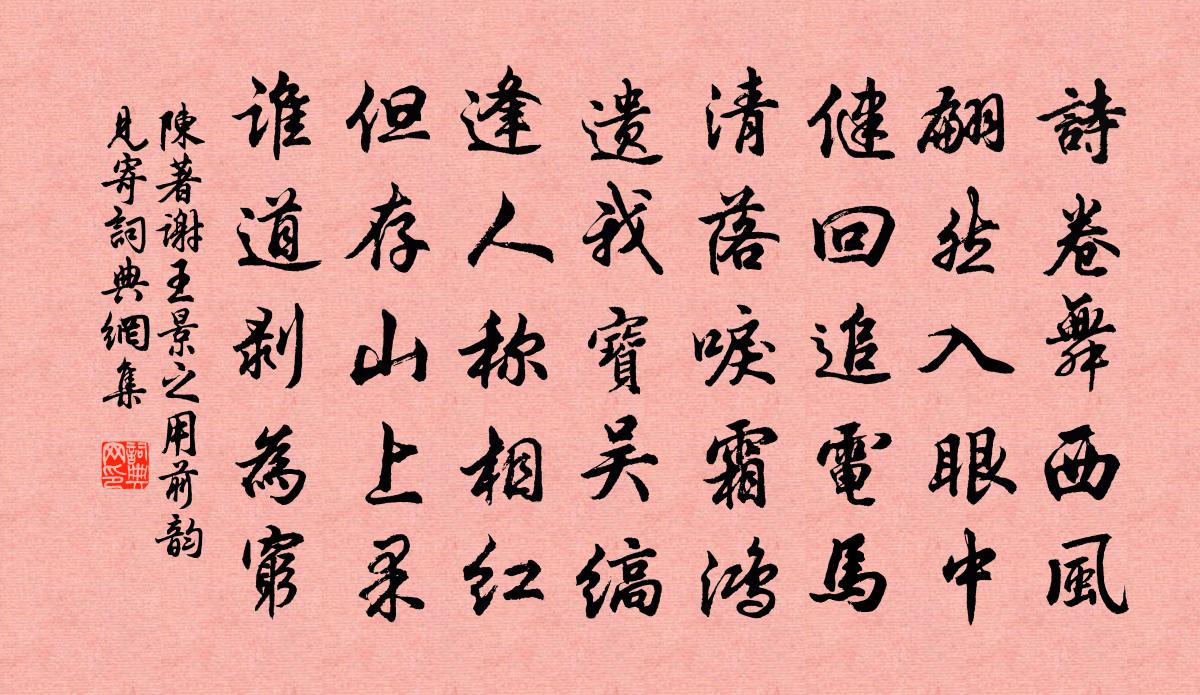 詩卷舞西風
翩然入眼中
健回追電馬
清落唳霜鴻
遗我寶吴縞
逢人称相红
但存山上果
谁道剥為窮
陳著谢王景之用前韵
見寄詞典網集
詞典網印